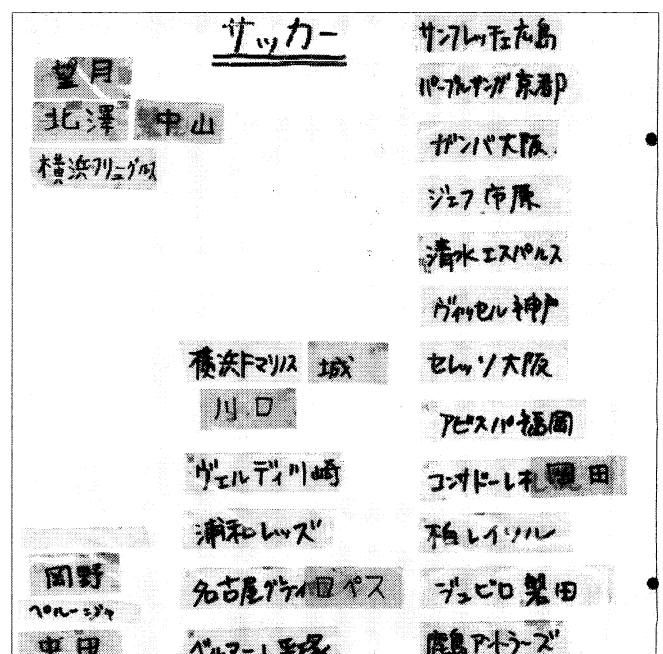 サッカー
望月
北澤
中山
横浜フリューゲルス
横浜Fマリノス
城
川口
ヴェルディ川崎
浦和レッズ
名古屋グランパ
ロペス
ベルマーレ平塚
岡野
ペルージャ
中田
サンフレッチェ広島
パープルサンガ京都
ガンバ大阪
ジェフ市原
清水エスパルス
ヴィッセル神戸
セレッソ大阪
アビスパ福岡
コンサドーレ札
岡田
柏レイソル
ジュビロ磐田
鹿島アントラーズ